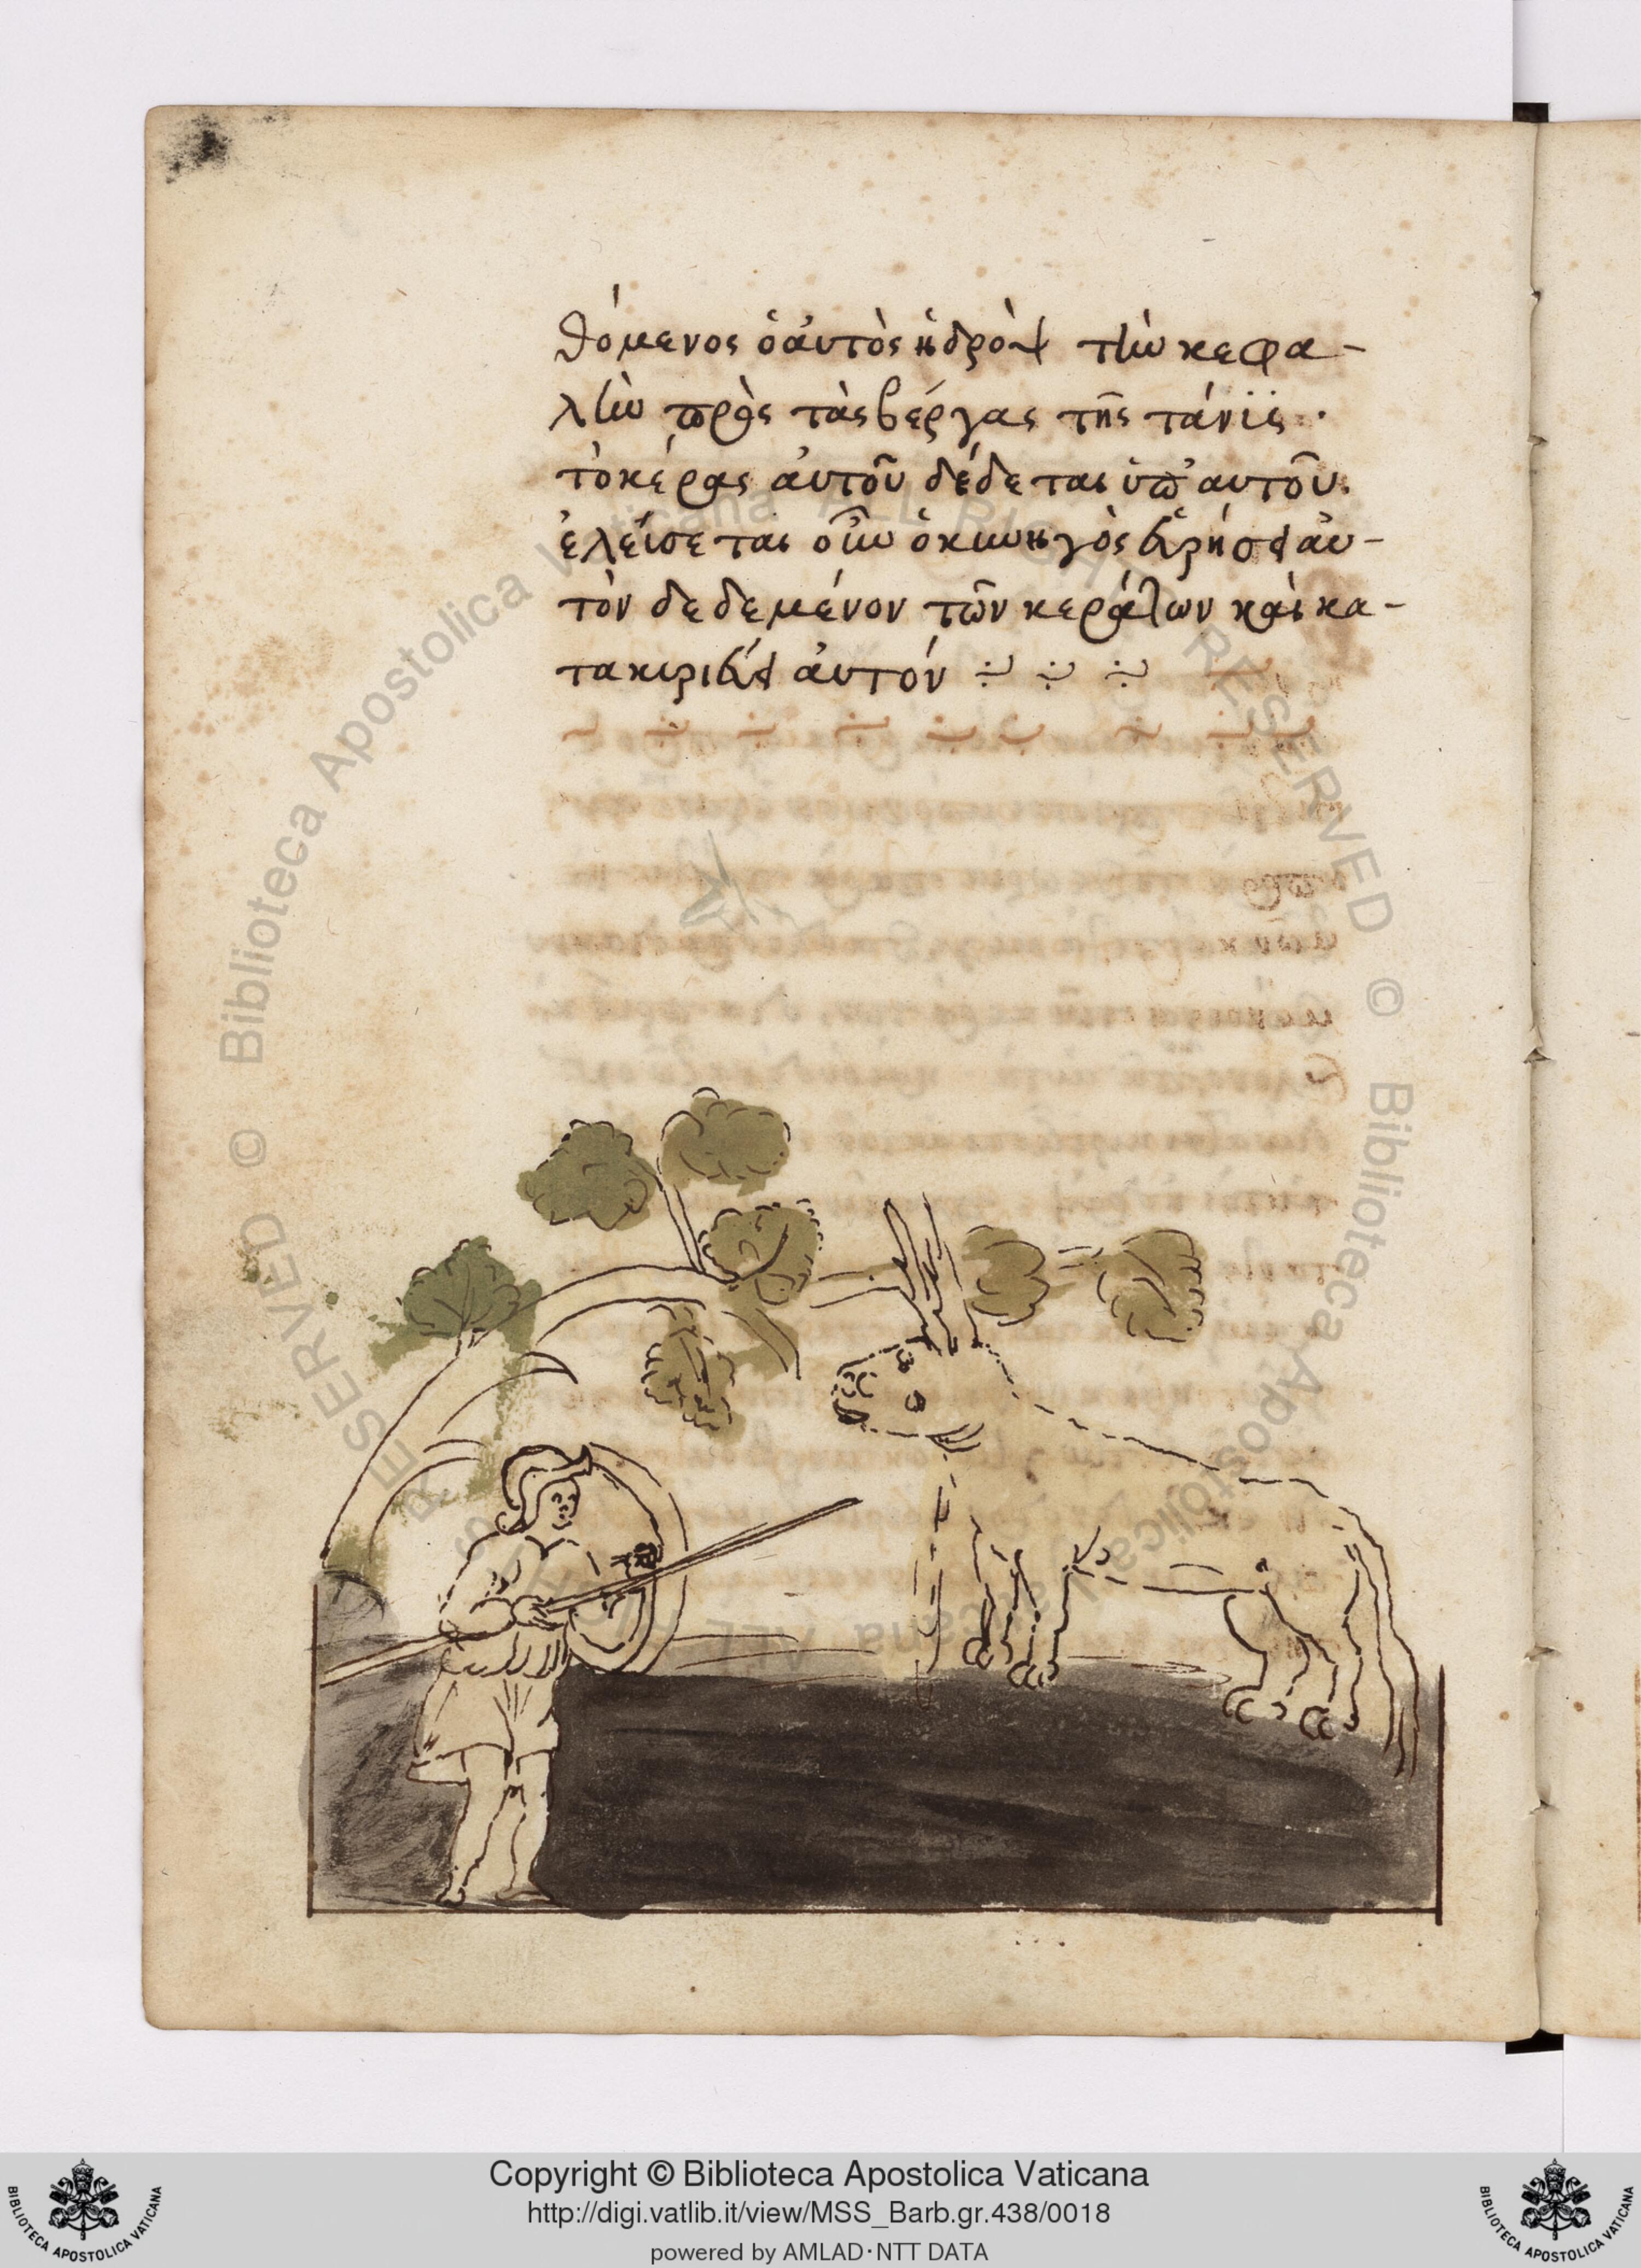 θόμενος ὁ αὐτὸς ὑδρὸψ τὴν κεφα-
λὴν πρὸς τὰς βέργας τῆς τάνϊς ·
τὸ κέρας αὐτοῦ δέδεται ὑπ' αὐτοῦ.
ἐλεύσεται οὖν ὁ κυνηγὸς εὑρήσει αὐ-
τὸν δεδεμένον τῶν κεράτων καὶ κα-
τακυριεύει αὐτόν
Copyright © Biblioteca Apostolica Vaticana
http://digi.vatlib.it/view/MSS_Barb.gr.438/0018
powered by AMLAD·NTT DATA
BIBLIOTECA APOSTOLICA VATICANA
BIBLIOTECA APOSTOLICA VATICANA
© Biblioteca Apostolica Vaticana ALL RIGHTS RESERVED © Biblioteca Apostolica Vaticana ALL RIGHTS RESERVED